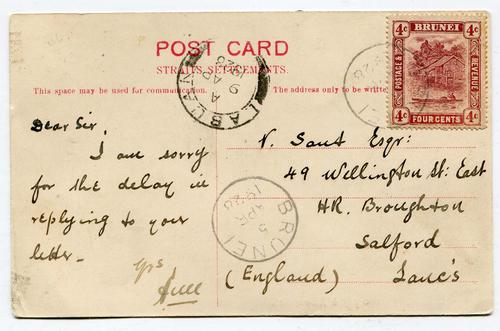 POST CARD
STRAITS SETTLEMENTS.
This space may be used for communication.
The address only to be written
4c BRUNEI 4c
POSTAGE & REVENUE
4c FOUR CENTS 4c
LABUAN
9 AP
BRUNEI
5
APR
1928
Dear Sir,
I am sorry
for the delay in
replying to your
letter-
yrs
V. Sant Esqr:
49 Wellington St: East
HR. Broughton
Salford
(England) Lanc's